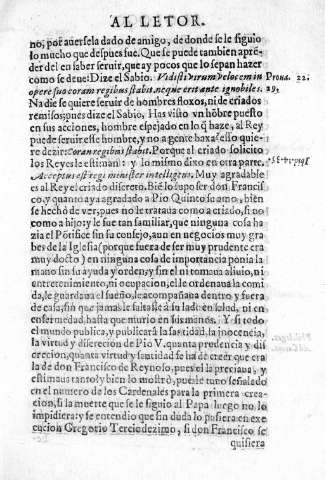 AL LETOR.
no, por auersela dado de amigo, de donde se le siguio
lo mucho que despues fue. Que se puede tambien apré-
der del en saber seruir, que ay pocos que lo sepan hazer
como se deue: Dize el Sabio. Vidisti virum velocem in Prou. 22.
opere suo coram regibus stabit, neque erit ante ignobiles. 29.
Nadie se quiere seruir de hombres floxos, ni de criados
remisos; pues dize el Sabio, Has visto vn hõbre puesto
en sus acciones, hombre espejado en lo q̃ haze, al Rey
puede seruir esse hombre, y no a gente baxa: esso quie-
re dezir: Coram regibus stabit. Porque el criado solicito
los Reyes le estiman: y lo mismo dixo en otra parte.
Acceptus est regi minister intelligens. Muy agradable
es al Rey el criado discreto. Biē lo supo ser don Francis
co, y quanto aya agradado a Pio Quinto su amo, biēn
se hecho de ver, pues no le trataua como a criado, si no
como a hijo; y le fue tan familiar, que ninguna cosa ha
zia el Põtifice sin su consejo, aun en negocios muy gra
bes de la Iglesia (porque fuera de ser muy prudente era
muy docto) en ninguna cosa de importancia ponia la
mano sin su ayuda y orden, y sin el ni tomaua aliuio, ni
entretenimiento, ni ocupacion, el le ordenaua la comi
da, le guardaua el sueño, le acompañaua dentro y fuera
de casa, sin que jamas le faltasse a su lado en salud, ni en
enfermedad, hasta que murio en sus manos. Y si todo
el mundo publica, y publicarà la santidad, la inocencia,
la virtud y discrecion de Pio V. quanta prudencia y dis
crecion, quanta virtud y santidad se ha de creer que era
la de don Francisco de Reynoso, pues el la preciaua, y
estimaua tanto? y bien lo mostrò, pues le tuuo señalado
en el numero de los Cardenales para la primera crea-
cion, si la muerte que se le siguio al Papa luego no lo
impidiera: y se entendio que sin duda lo pusiera en exe
cucion Gregorio Terciodezimo, si don Francisco se
quisiera